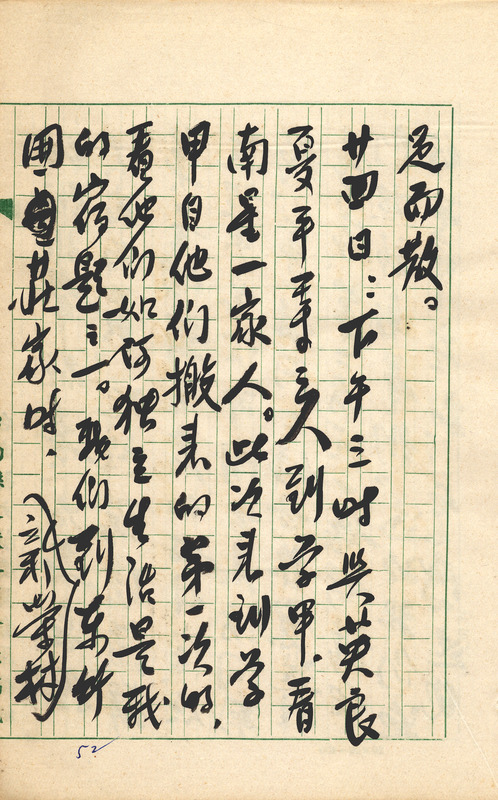 足而散。
廿四日：下午三时与英良
夏平等三人到学甲．看
南星一家人。此次来到学
甲自他们搬来的第一次的，
看他们如何独立生活是我
的宿题之一。我们到东竹
围庄家时、
荣林
52